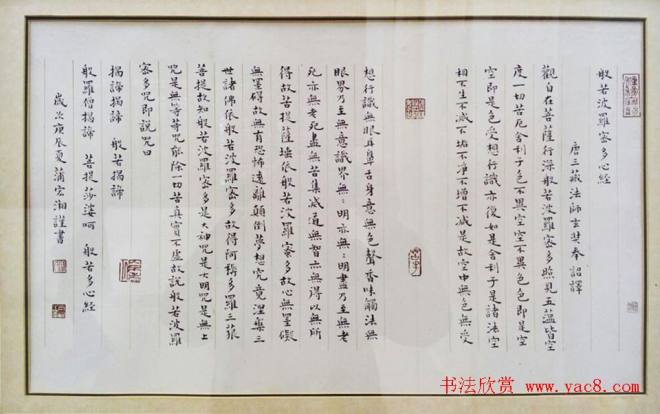 般若波羅蜜多心經
唐三藏法師玄奘奉 詔譯
觀自在菩薩行深般若波羅蜜多照見五蘊皆空
度一切苦厄舍利子色不異空空不異色色即是空
空即是色受想行識亦復如是舍利子是諸法空
相不生不滅不垢不淨不增不減是故空中無色無受
想行識無眼耳鼻舌身意無色聲香味觸法無
眼界乃至無意識界無:明亦無:明盡乃至無老
死亦無老死盡無苦集滅道無智亦無得以無所
得故菩提薩埵依般若波羅蜜多故心無罣礙
無罣礙故無有恐怖遠離顛倒夢想究竟涅槃三
世諸佛依般若波羅蜜多故得阿耨多羅三藐
菩提故知般若波羅蜜多是大神咒是大明咒是無上
咒是無等等咒能除一切苦真實不虛故說般若波羅
蜜多咒即說咒曰
揭諦揭諦 般若揭諦
般羅僧揭諦 菩提莎婆呵 般若多心經
歲次庚辰夏蒲宏湘謹書
书法欣赏 www.yac8.com